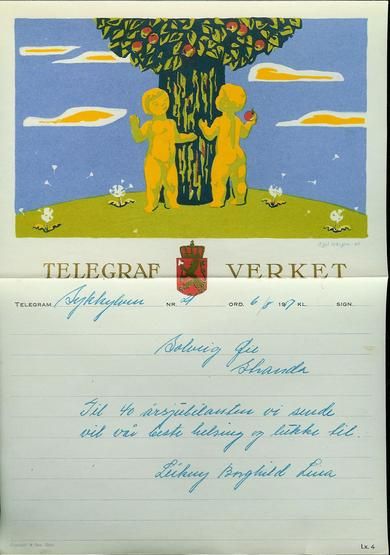 TELEGRAF VERKET
TELEGRAM Sykkylven NR. 4 ORD. 6/8 1957 KL. SIGN.
Solveig Øie
Stranda
Til 40 årsjubilanten vi sende
vil vår beste helsing og lukke til.
Leikny Borghild Lina
Lx. 4